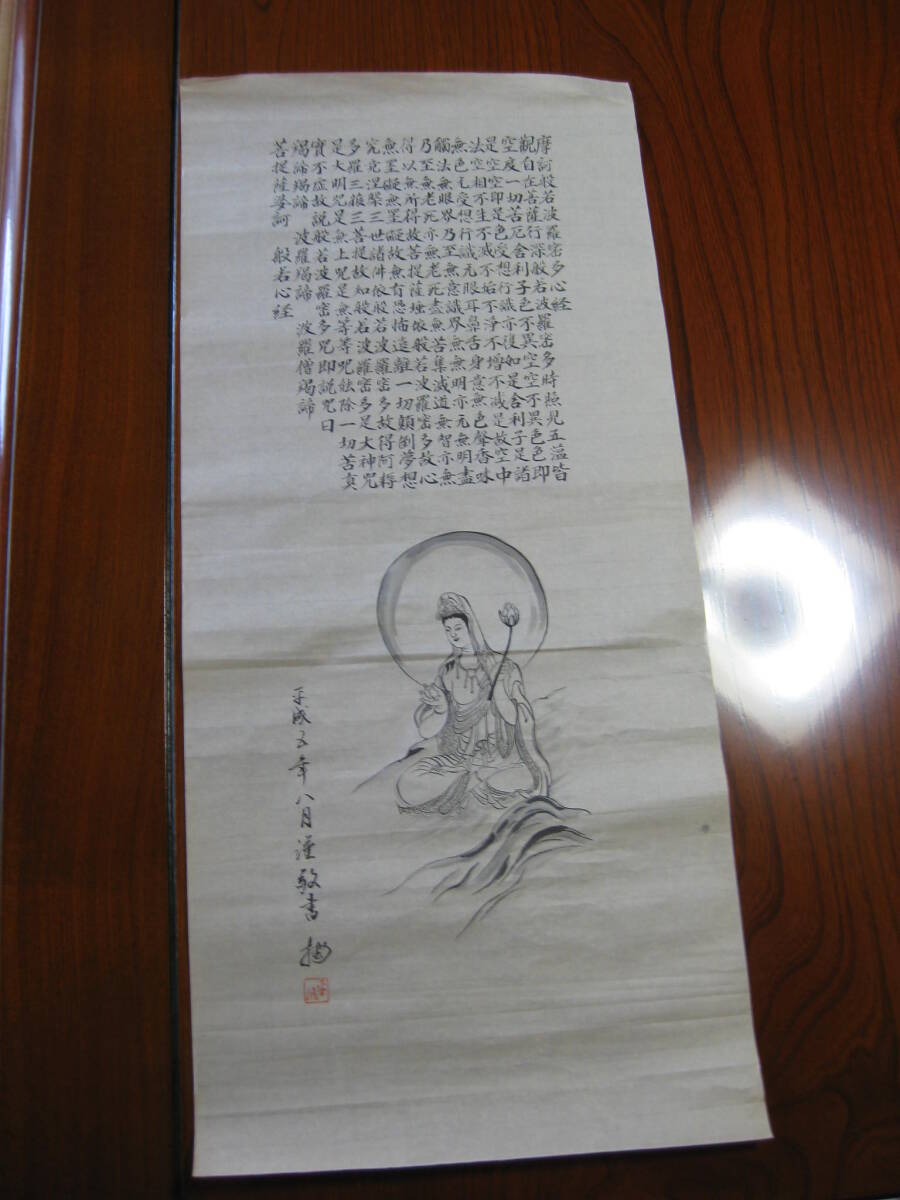 摩訶般若波羅密多心経
觀自在菩薩行深般若波羅密多時照見五蘊皆
空度一切苦厄舍利子色不異空空不異色色即
是空空即是色受想行識亦復如是舍利子是諸
法空相不生不滅不垢不淨不增不減是故空中
無色无受想行識无眼耳鼻舌身意無色聲香味
觸法無眼界乃至無意識界無無明亦无無明盡
乃至無老死亦無老死盡無苦集滅道無智亦無
得以無所得故菩提薩埵依般若波羅密多故心
無罣礙無罣礙故無有恐怖遠離一切顛倒夢想
究竟涅槃三世諸仏依般若波羅密多故得阿耨
多羅三藐三菩提故知般若波羅密多是大神咒
是大明咒是無上咒是無等等咒能除一切苦真
實不虛故説般若波羅密多咒即説咒曰
羯諦羯諦 波羅羯諦 波羅僧羯諦
菩提薩婆訶 般若心経
平成五年八月謹敬書